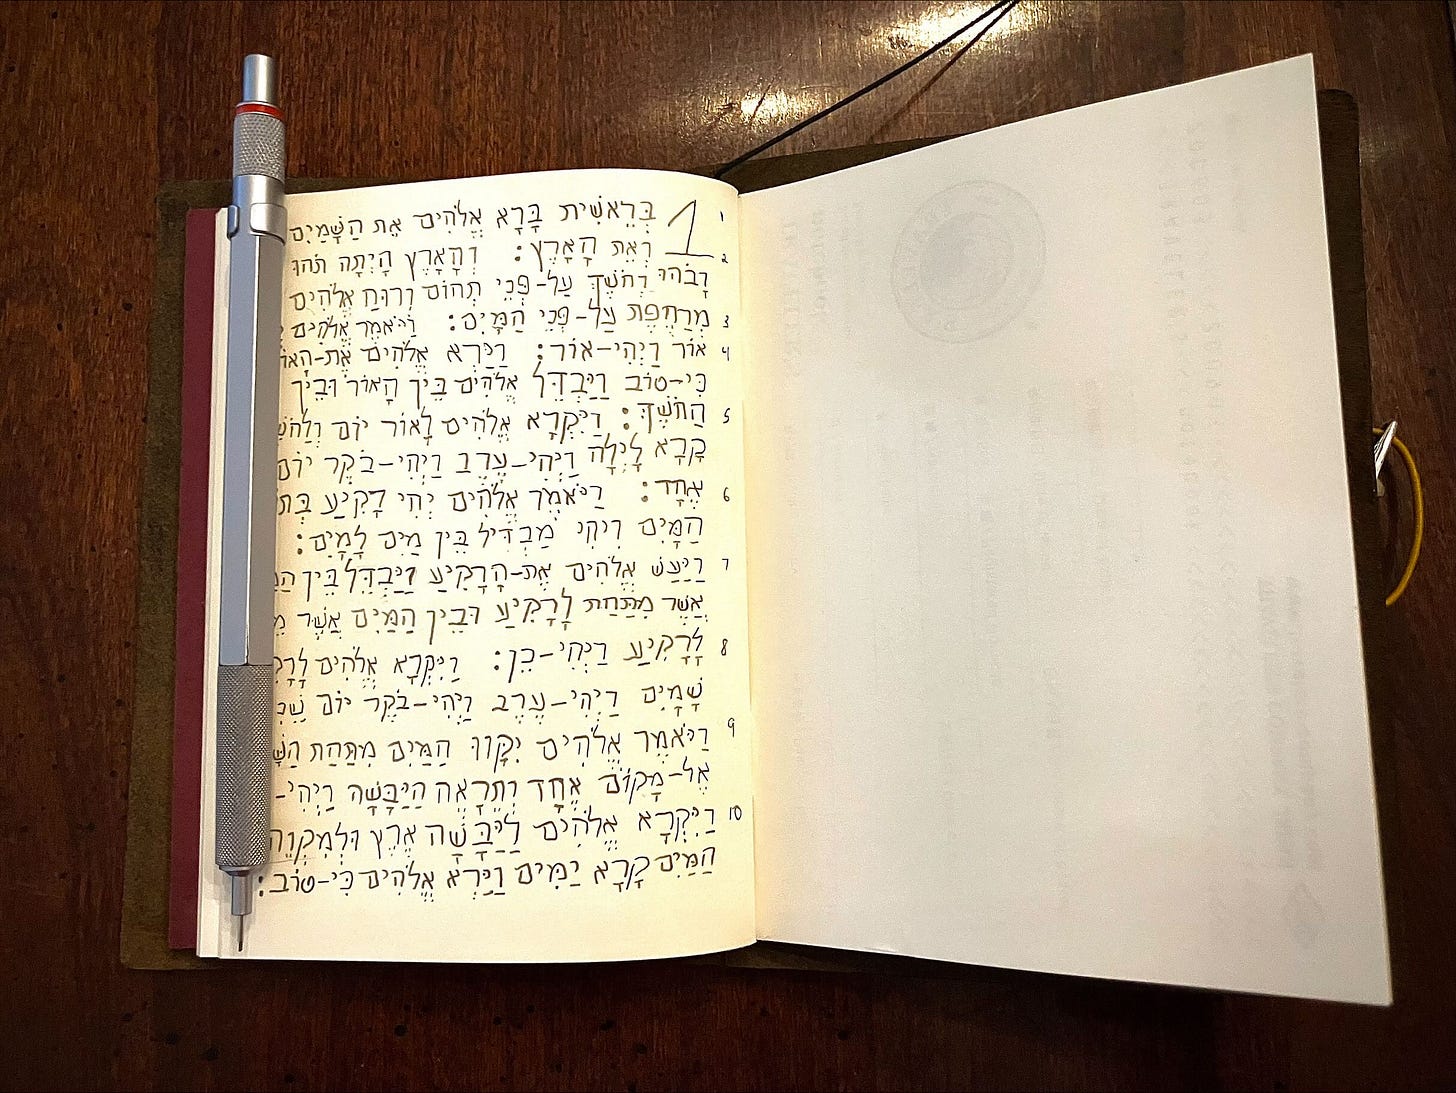 1 בְּרֵאשִׁית בָּרָא אֱלֹהִים אֵת הַשָּׁמַיִם
וְאֵת הָאָרֶץ: 2 וְהָאָרֶץ הָיְתָה תֹהוּ
וָבֹהוּ וְחֹשֶׁךְ עַל-פְּנֵי תְהוֹם וְרוּחַ אֱלֹהִים
מְרַחֶפֶת עַל-פְּנֵי הַמָּיִם: 3 וַיֹּאמֶר אֱלֹהִים
אוֹר וַיְהִי-אוֹר: 4 וַיַּרְא אֱלֹהִים אֶת-הָאוֹ
כִּי-טוֹב וַיַּבְדֵּל אֱלֹהִים בֵּין הָאוֹר וּבֵין
הַחֹשֶׁךְ: 5 וַיִּקְרָא אֱלֹהִים לָאוֹר יוֹם וְלַחֹשֶׁ
קָרָא לָיְלָה וַיְהִי-עֶרֶב וַיְהִי-בֹקֶר יוֹם
אֶחָד: 6 וַיֹּאמֶר אֱלֹהִים יְהִי רָקִיעַ בְּת
הַמָּיִם וִיהִי מַבְדִּיל בֵּין מַיִם לָמָיִם:
7 וַיַּעַשׂ אֱלֹהִים אֶת-הָרָקִיעַ וַיַּבְדֵּל בֵּין הַמ
אֲשֶׁר מִתַּחַת לָרָקִיעַ וּבֵין הַמַּיִם אֲשֶׁר מֵ
לָרָקִיעַ וַיְהִי-כֵן: 8 וַיִּקְרָא אֱלֹהִים לָרָקִ
שָׁמָיִם וַיְהִי-עֶרֶב וַיְהִי-בֹקֶר יוֹם שֵׁנִ
9 וַיֹּאמֶר אֱלֹהִים יִקָּווּ הַמַּיִם מִתַּחַת הַשָּׁ
אֶל-מָקוֹם אֶחָד וְתֵרָאֶה הַיַּבָּשָׁה וַיְהִי-
10 וַיִּקְרָא אֱלֹהִים לַיַּבָּשָׁה אֶרֶץ וּלְמִקְוֵה
הַמַּיִם קָרָא יַמִּים וַיַּרְא אֱלֹהִים כִּי-טוֹב: